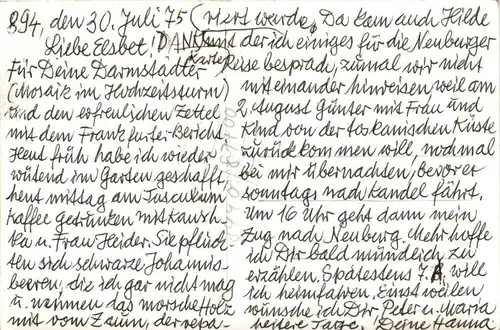 894, den 30. Juli 75
Liebe Elsbet! DANK
Für Deine Darmstädter Karte
(Mosaik im Hochzeitsturm)
und den erfreulichen Zettel
mit dem Frankfurter-Bericht.
Heut früh habe ich wieder
wütend im Garten geschafft,
heut mittag am Tusculum
Kaffee getrunken mit Kausch-
ka u. Frau Heider. Sie pflück-
ten sich schwarze Johannis-
beeren, die ich gar nicht mag
u. nahmen das morsche Holz
mit vom Zaun, der repa-
riert wurde. Da kam auch Hilde
mit der ich einiges für die Neuburger
Reise besprach, zumal wir nicht
miteinander hinreisen, weil am
2. August Günter mit Frau und
Kind von der toskanischen Küste
zurückkommen will, nochmal
bei mir übernachten, bevor er
sonntags nach Kandel fährt.
Um 16 Uhr geht dann mein
Zug nach Neuburg. Mehr hoffe
ich Dir bald mündlich zu
erzählen. Spätestens 7. 8. will
ich heimfahren. Einstweilen
wünsche ich Dir, Peter u. Maria
heitere Tage. Deine Hanna